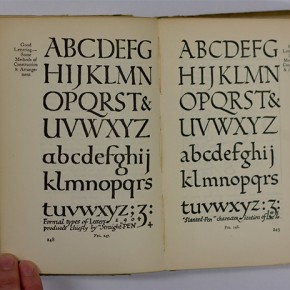 Good
Lettering—
Some
Methods of
Construction
& Arrange-
ment
ABCDEFG
HIJKLMN
OPQRST&
UVWXYZ
abcdefghij
klmnopqrs
tuvwxyz:
Formal types of Letters
produced chiefly by "straight" PEN.
FIG. 147.
244
ABCDEFG
HIJKLMN
OPQRST&
UVWXYZ
abcdefghij
klmnopqrs
tuvwxyz;
"Slanted-Pen" characters
FIG. 148.
245